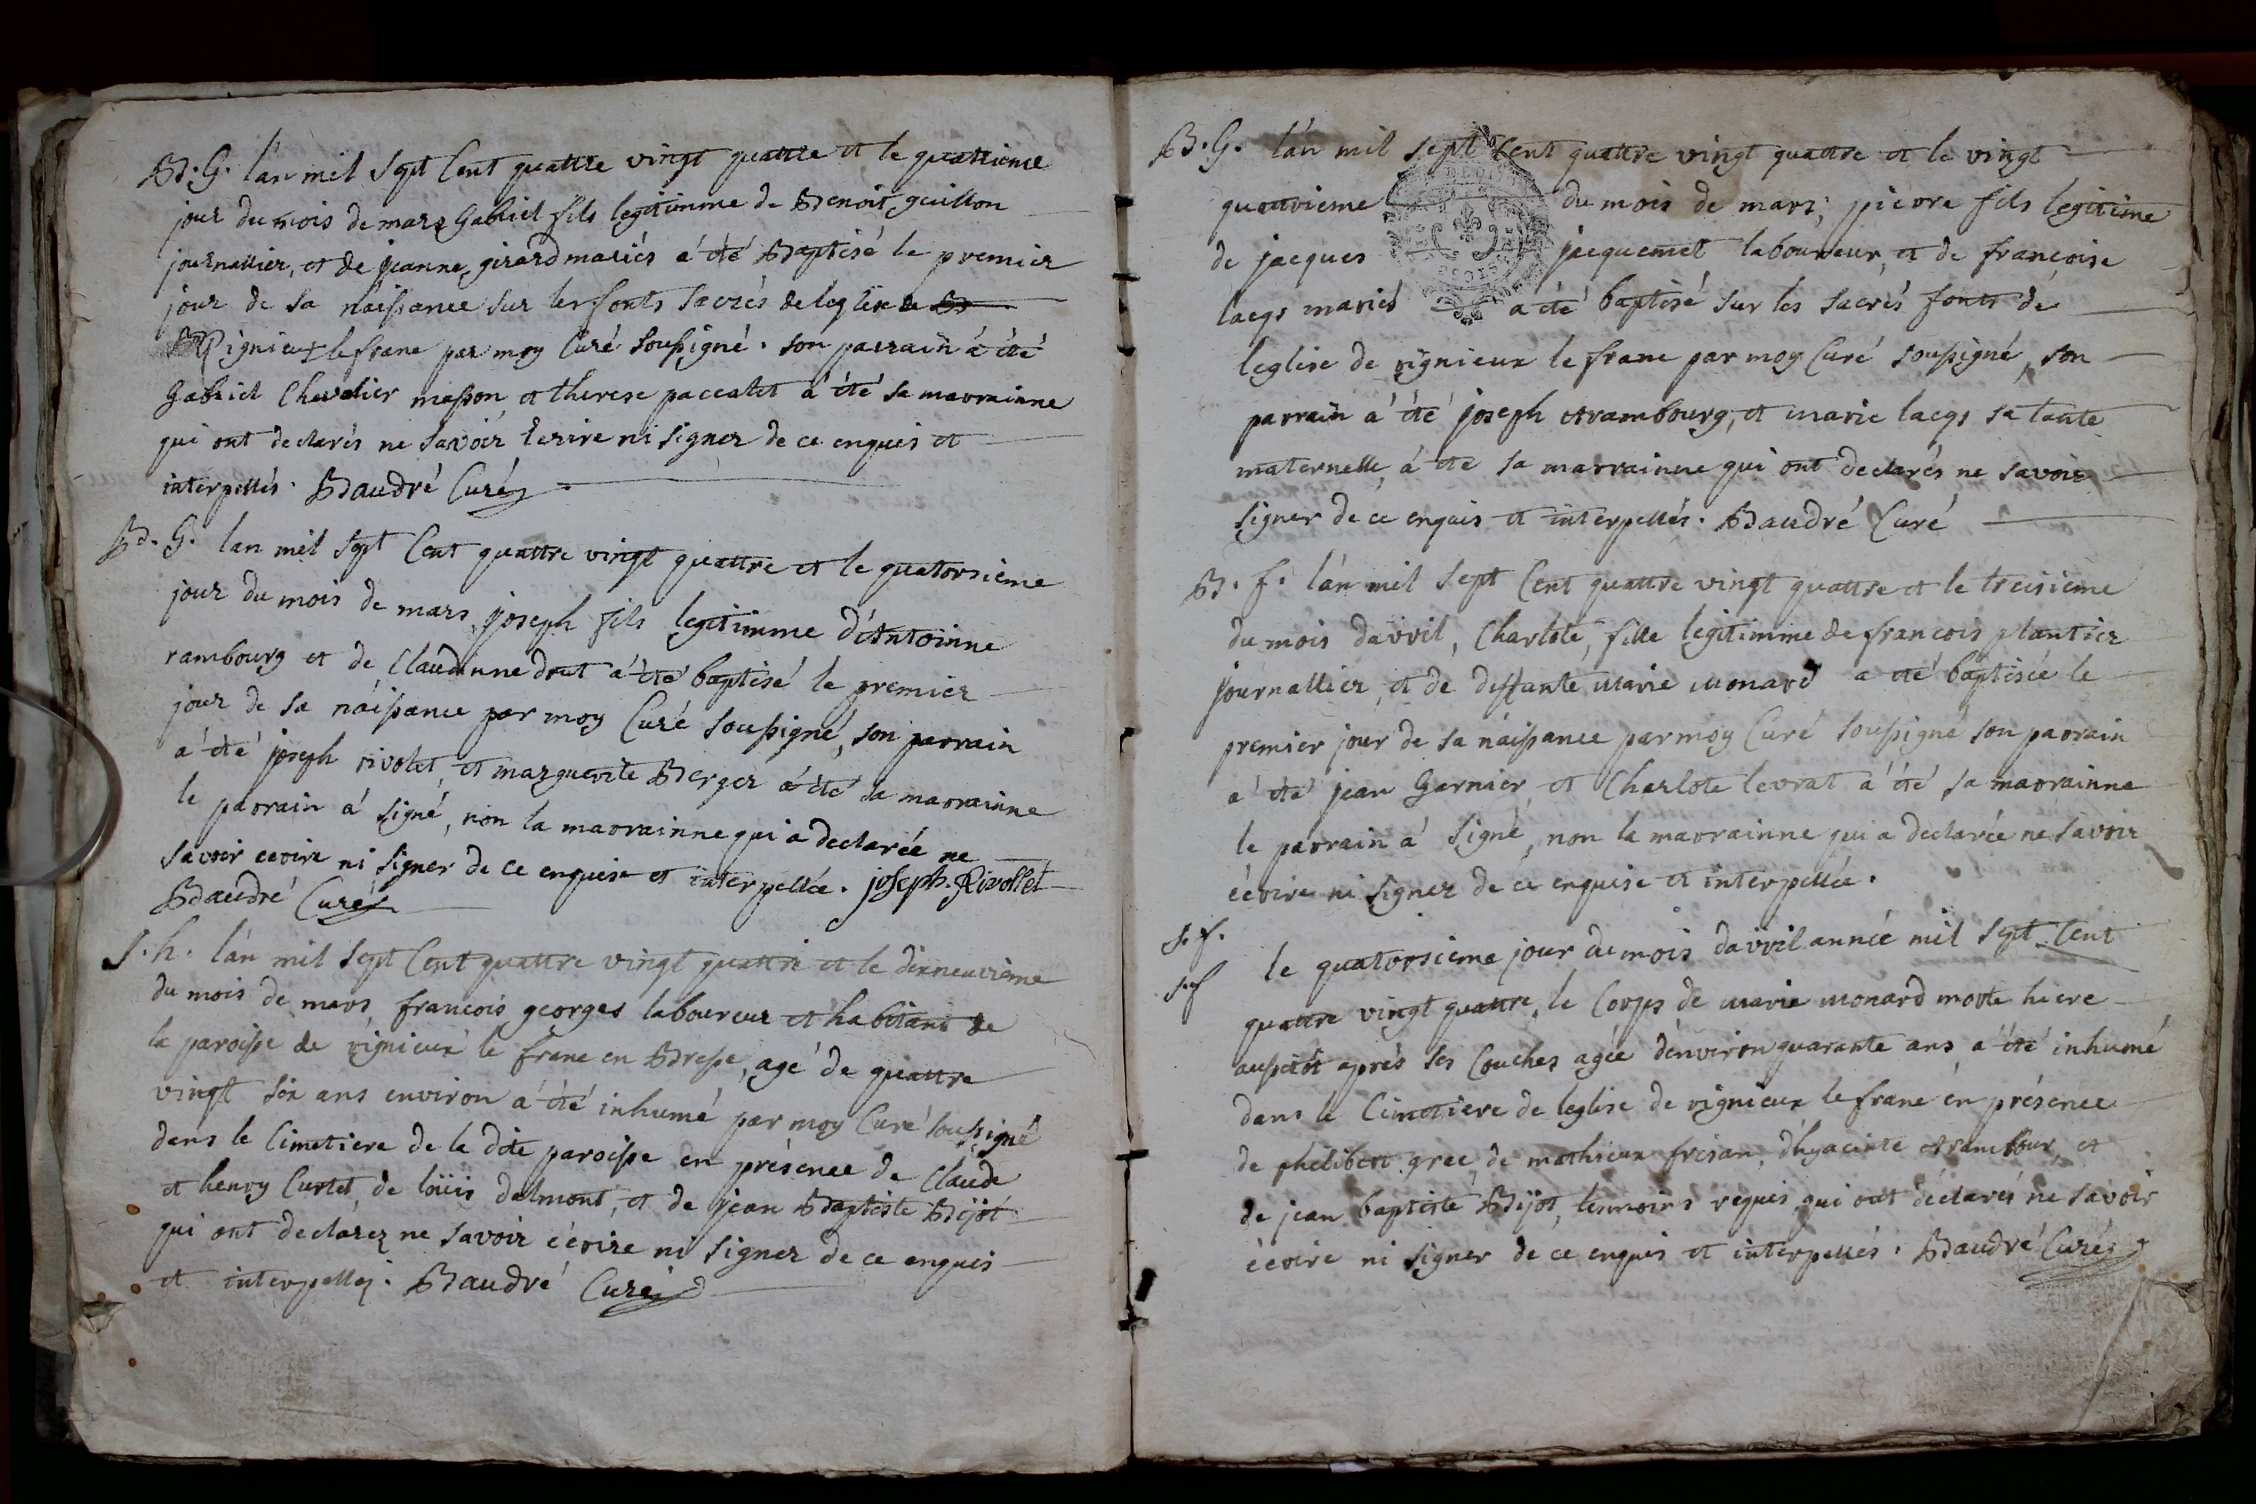 B. G. l'an mil sept Cent quattre vingt quattre et le quattrieme
jour du mois de mars Gabriel fils legitimme de Benoit guillon
journallier, et de jeanne girard mariés a été Baptisé le premier
jour de sa naissance sur les fonts sacrés de leglise de
Rignieux le franc par moy Curé soussigné. son parrain a été
Gabriel Chevalier masson et therese paccalet a été sa marrainne
qui ont declarés ne savoir Ecrire ni signer de ce enquis et
interpellés. Baudré Curé
B. G. lan mil sept Cent quattre vingt quattre et le quatorsieme
jour du mois de mars joseph fils legitimme d'Antoinne
rambourg et de Claudinne drut a été baptisé le premier
jour de sa naissance par moy Curé soussigné, son parrain
a été joseph rivolet, et marguerite Berger a été sa marrainne
le parrain a signé, non la marrainne qui a declarée ne
savoir ecrire ni signer de ce enquise et interpellée. joseph. Rivollet
Baudré Curé
S. h. l'an mil sept Cent quattre vingt quattre et le dixneuvieme
du mois de mars francois georges laboureur et habitant de
la paroisse de rignieux le franc en Bresse, agé de quattre
vingt six ans environ a été inhumé par moy Curé soussigné
dans le Cimetiere de la dite paroisse en présence de Claude
et henry Curtet, de loüis delmont, et de jean Baptiste Bijot
qui ont declarez ne savoir écrire ni signer de ce enquis
et interpellez. Baudré Curé
B. G. l'an mil sept Cent quattre vingt quattre et le vingt
quatrieme du mois de mars; pierre fils legitime
de jacques jacquemet laboureur, et de francoise
lacqs mariés a été baptisé sur les sacrés fonts de
leglise de rignieux le franc par moy Curé soussigné, son
parrain a été joseph Arambourg, et marie lacqs sa tante
maternelle a été sa marrainne qui ont declarés ne savoir
signer de ce enquis et interpellés. Baudré Curé
B. f. l'an mil sept Cent quattre vingt quattre et le treisieme
du mois davril, Charlote, fille legitimme de francois plantier
journallier, et de deffante marie monard a été baptisée le
premier jour de sa naissance par moy Curé soussigné son parrain
a été jean Garnier, et Charlote levrat a été sa marrainne
le parrain a signé, non la marrainne qui a declarée ne savoir
écrire ni signer de ce enquise et interpellée.
s. f.
le quatorsieme jour du mois davril année mil sept Cent
quattre vingt quattre, le Corps de marie monard morte hiere
aussitôt après ses Couches agée denviron quarante ans a été inhumé
dans le Cimetiere de leglise de rignieux le franc en présence
de phelibert gree, de mathieux frisan, d'hyacinte Arambour, et
de jean baptiste Bijot, temoins requis qui ont déclarés ne savoir
écrire ni signer de ce enquis et interpellés. Baudré Curé